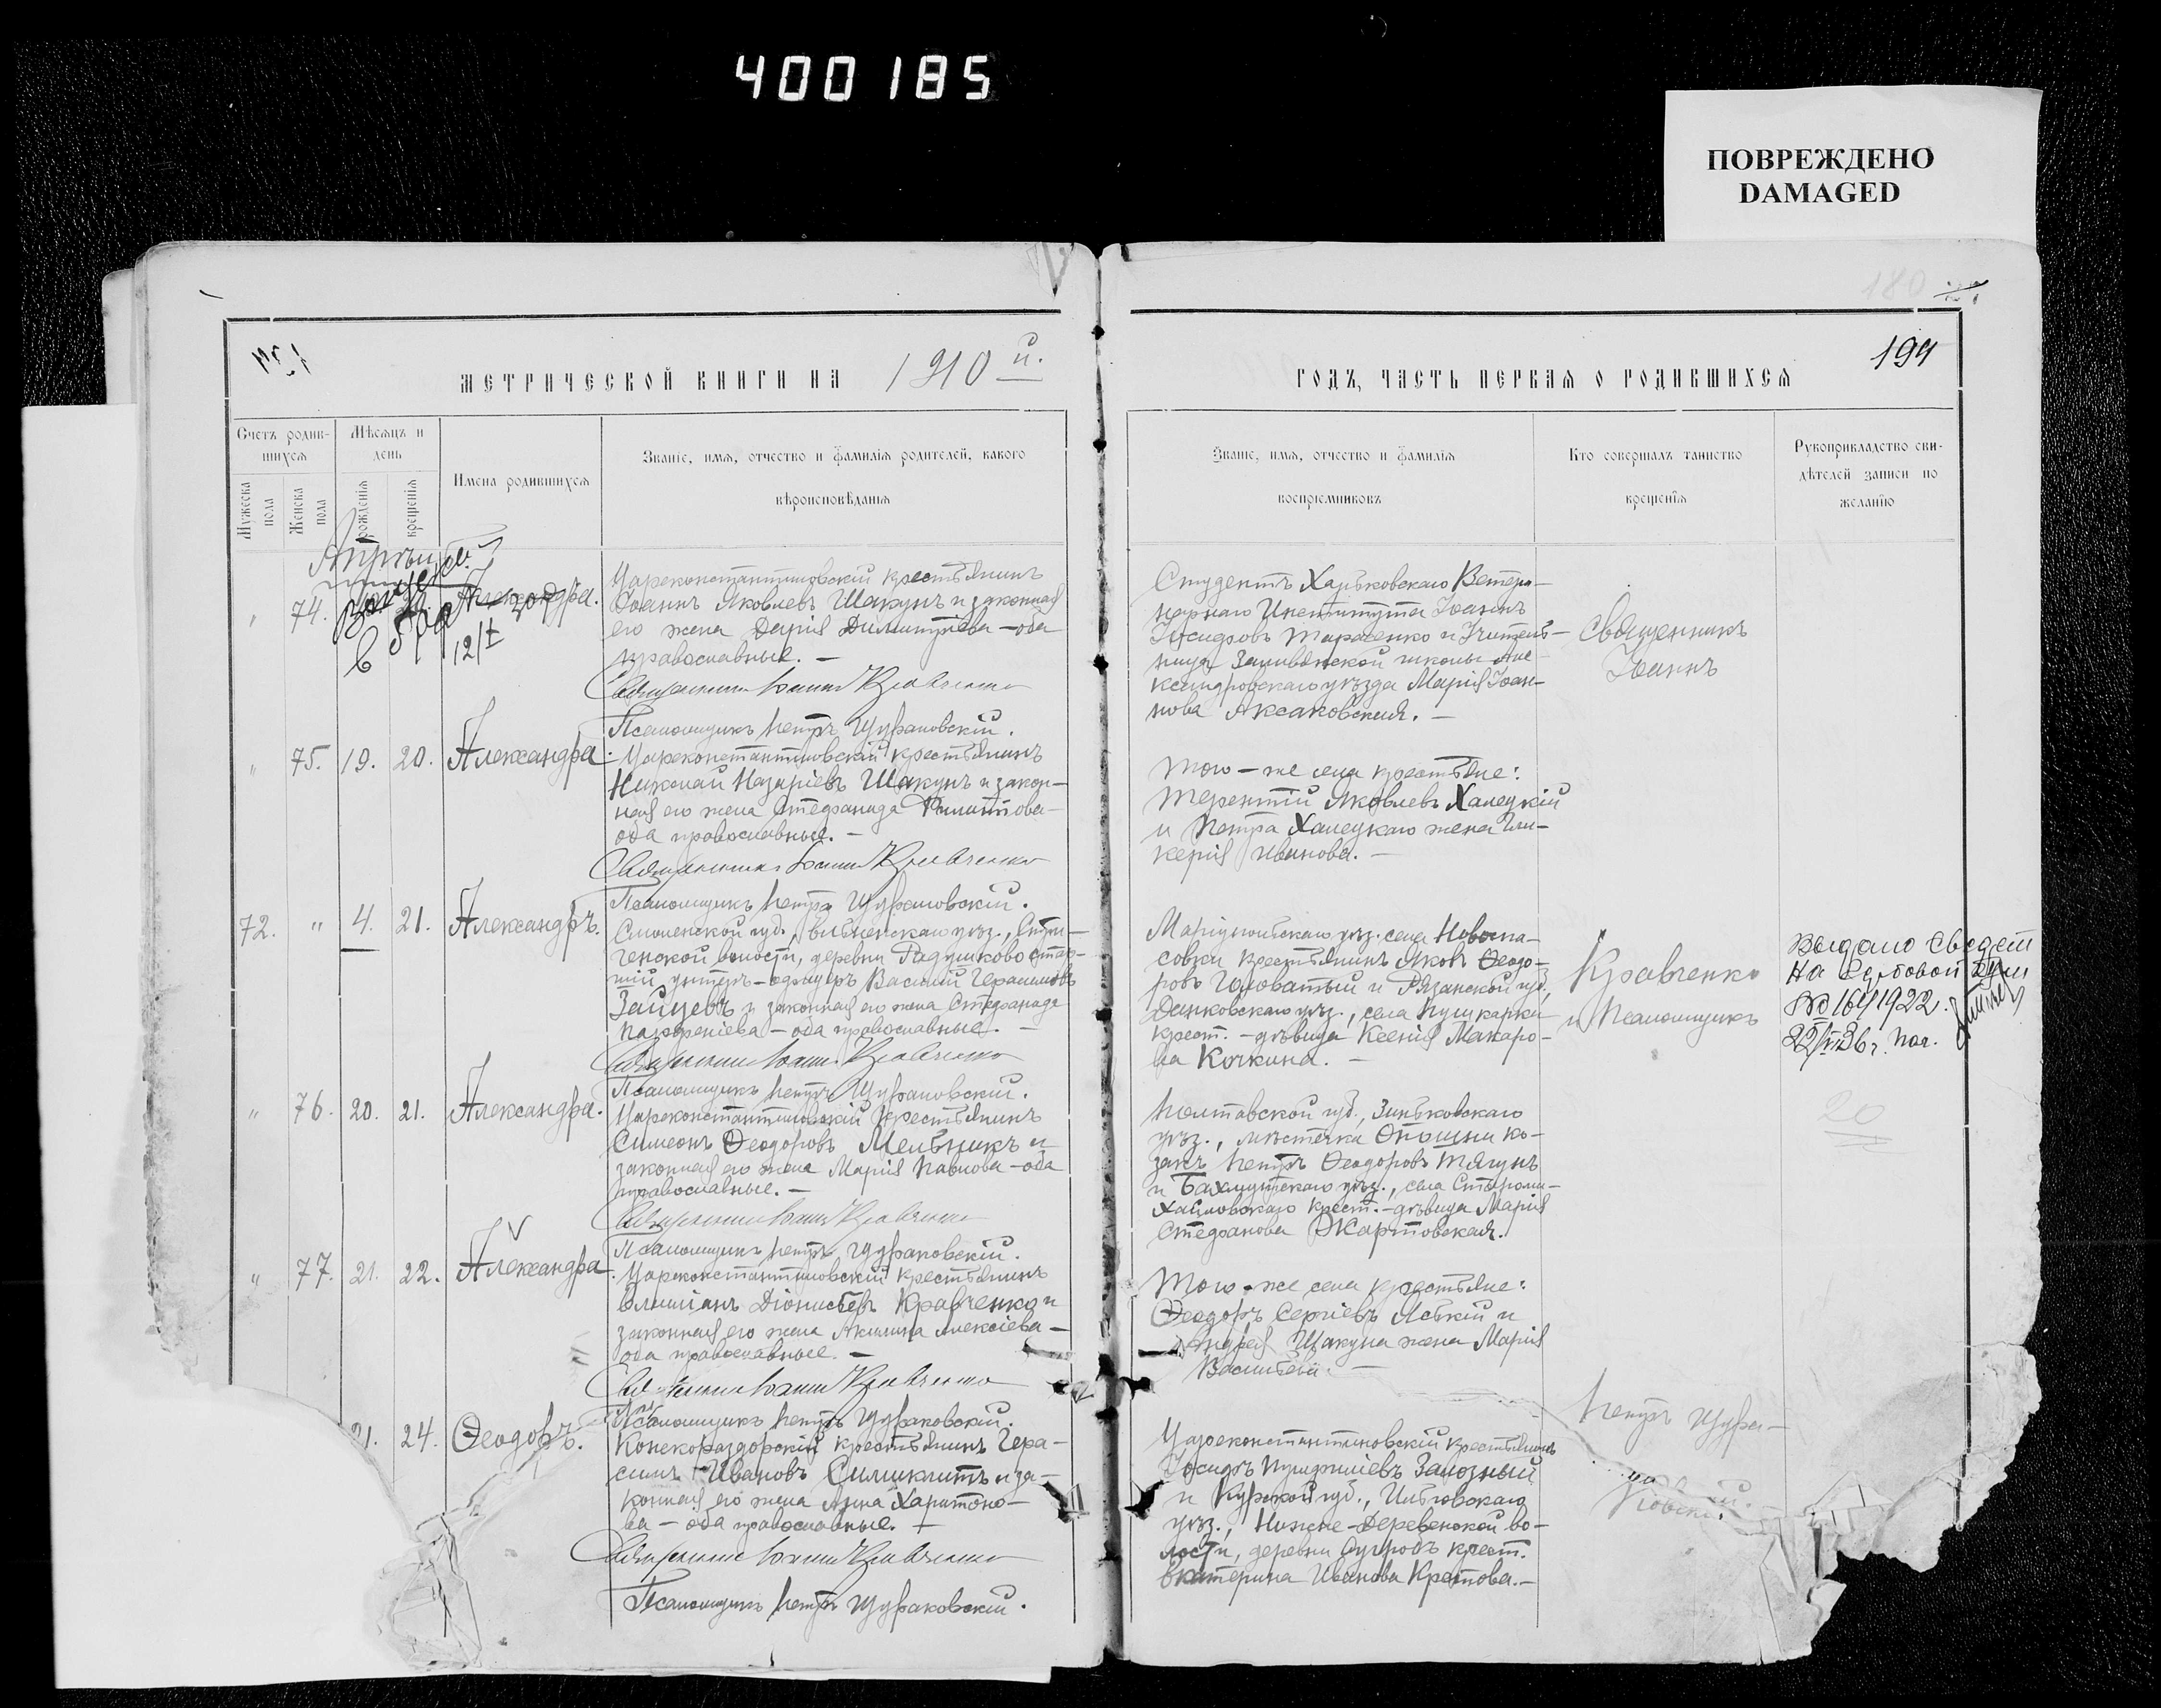 400185
ПОВРЕЖДЕНО
DAMAGED
180
194
МЕТРИЧЕСКОЙ КНИГИ НА 1910 й.
ГОДЪ, ЧАСТЬ ПЕРВАЯ О РОДИВШИХСЯ
Счетъ родив-
шихся
Мужеска пола
Женска пола
Мѣсяцъ и
день
рожденія
крещенія
Имена родившихся
Званіе, имя, отчество и фамилія родителей, какого
вѣроисповѣданія
Званіе, имя, отчество и фамилія
воспріемниковъ
Кто совершалъ таинство
крещенія
Рукоприкладство сви-
дѣтелей записи по
желанію
" 74. Александра.
Цареконстантиновскій крестьянинъ
Іоаннъ Яковлевъ Шакунъ и законная
его жена Дарія Димитріева – оба
православные. –
Священникъ Іоаннъ Кравченко
Псаломщикъ Петръ Цураковскій.
Студентъ Харьковскаго Ветери-
нарнаго Института Іоаннъ
Исидоровъ Тарасенко и Учитель-
ница школы Але-
ксандровскаго уѣзда Марія Іоан-
нова Аксаковская. –
Священникъ
Іоаннъ
" 75. 19. 20. Александра.
Цареконстантиновскій крестьянинъ
Николай Назаріевъ Шакунъ и закон-
ная его жена Стефанида Филиппова –
оба православные. –
Священникъ Іоаннъ Кравченко
Псаломщикъ Петръ Цураковскій.
Того-же села крестьяне:
Терентій Яковлевъ Халецкій
и Петра Халецкаго жена Гли-
керія Иванова. –
72. " 4. 21. Александръ.
Смоленской губ., Бѣльскаго уѣз.,
волости, деревни Радушково стар-
шій унтеръ-офицеръ Василій Герасимовъ
Зайцевъ и законная его жена Стефанида
Парфеніева – оба православные. –
Священникъ Іоаннъ Кравченко
Псаломщикъ Петръ Цураковскій.
Маріупольскаго уѣз. села Новоспа-
совки крестьянинъ Яковъ Ѳеодо-
ровъ Головатый и Рязанской губ.,
Данковскаго уѣз., села Пушкарки
крест. – дѣвица Ксенія Макаро-
ва Кочкина. –
Кравченко
и Псаломщикъ
Выдано свидет
на
№ 164 1922.
" 76. 20. 21. Александра.
Цареконстантиновскій крестьянинъ
Симеонъ Ѳеодоровъ Мельникъ и
законная его жена Марія Павлова – оба
православные. –
Священникъ Іоаннъ Кравченко
Псаломщикъ Петръ Цураковскій.
Полтавской губ., Зиньковскаго
уѣз., мѣстечка Опошни ко-
закъ Петръ Ѳеодоровъ Тягунъ
и Бахмутскаго уѣз., села Староми-
хайловскаго крест. – дѣвица Марія
Стефанова Жартовская.
20
" 77. 21. 22. Александра.
Цареконстантиновскій крестьянинъ
Емиліанъ Діонисіевъ Кравченко и
законная его жена Акилина Алексіева –
оба православные. –
Священникъ Іоаннъ Кравченко
Псаломщикъ Петръ Цураковскій.
Того-же села крестьяне:
Ѳеодоръ Сергіевъ и
Андрея Шакуна жена Марія
Васильева. –
21. 24. Ѳеодоръ.
Конскораздорскій крестьянинъ Гера-
симъ Ивановъ и за-
конная его жена Анна Харитоно-
ва – оба православные. –
Священникъ Іоаннъ Кравченко
Псаломщикъ Петръ Цураковскій.
Цареконстантиновскій крестьянинъ
Іосифъ Залозный
и Курской губ., Льговскаго
уѣз., Нижне-Деревенской во-
лости, деревни крест.
Екатерина Иванова Кротова. –
Петръ Цура-
ковскій.